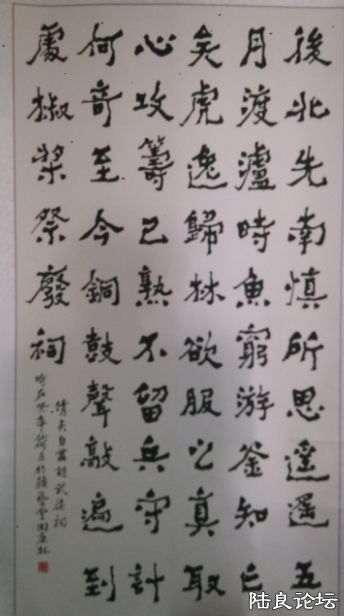 後北先南慎所思遥遥五
月渡瀘時魚窮游釜知亡
矣虎逸歸林欲服之真取
心攻籌已熟不留兵守計
何奇至今銅鼓聲敲遍到
處椒漿祭廢祠
清吴自肅詩武侯祠
陆良论坛